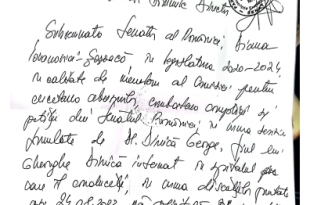 Director
Subsemnata Senator al României, Diana
Iovanovici-Șoșoacă în legislatura 2020-2024
în calitate de membru al Comisiei pentru
cercetarea abuzurilor, combaterea corupției și
petiții din Senatul României în urma
formulate de dl. Dincă George, fiul lui
Gheorghe Dincă internat în spitalul pe
care îl conduceți în urma discuțiilor purtate
24.08.2023